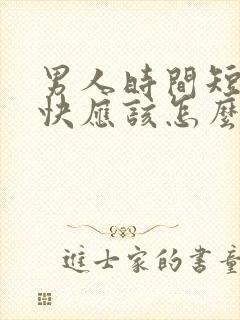 男人時間短
快應該怎麼
進士家的書童